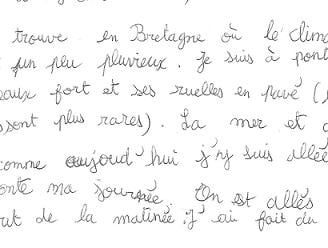 trouve en Bretagne où le clima
un peu pluvieux. Je suis à pont
eaux fort et ses ruelles en pavé (
ssont plus rares). La mer et
comme aujourd'hui j'y suis allée
onte ma journée. On est allés
ut de la matinée j'ai fait du